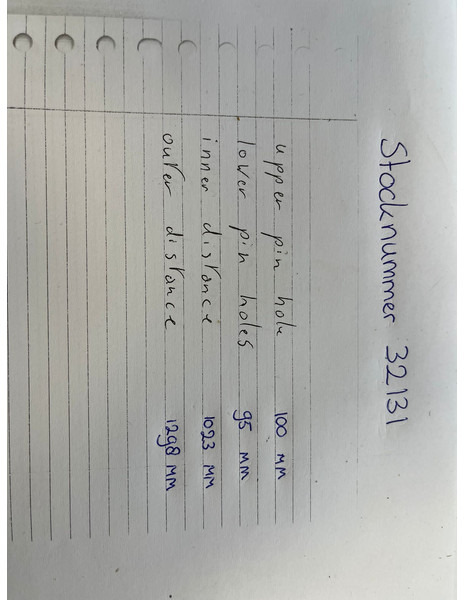 Stocknummer 32131
upper pin hole 100 MM
lower pin holes 95 MM
inner distance 1023 MM
outer distance 1298 MM